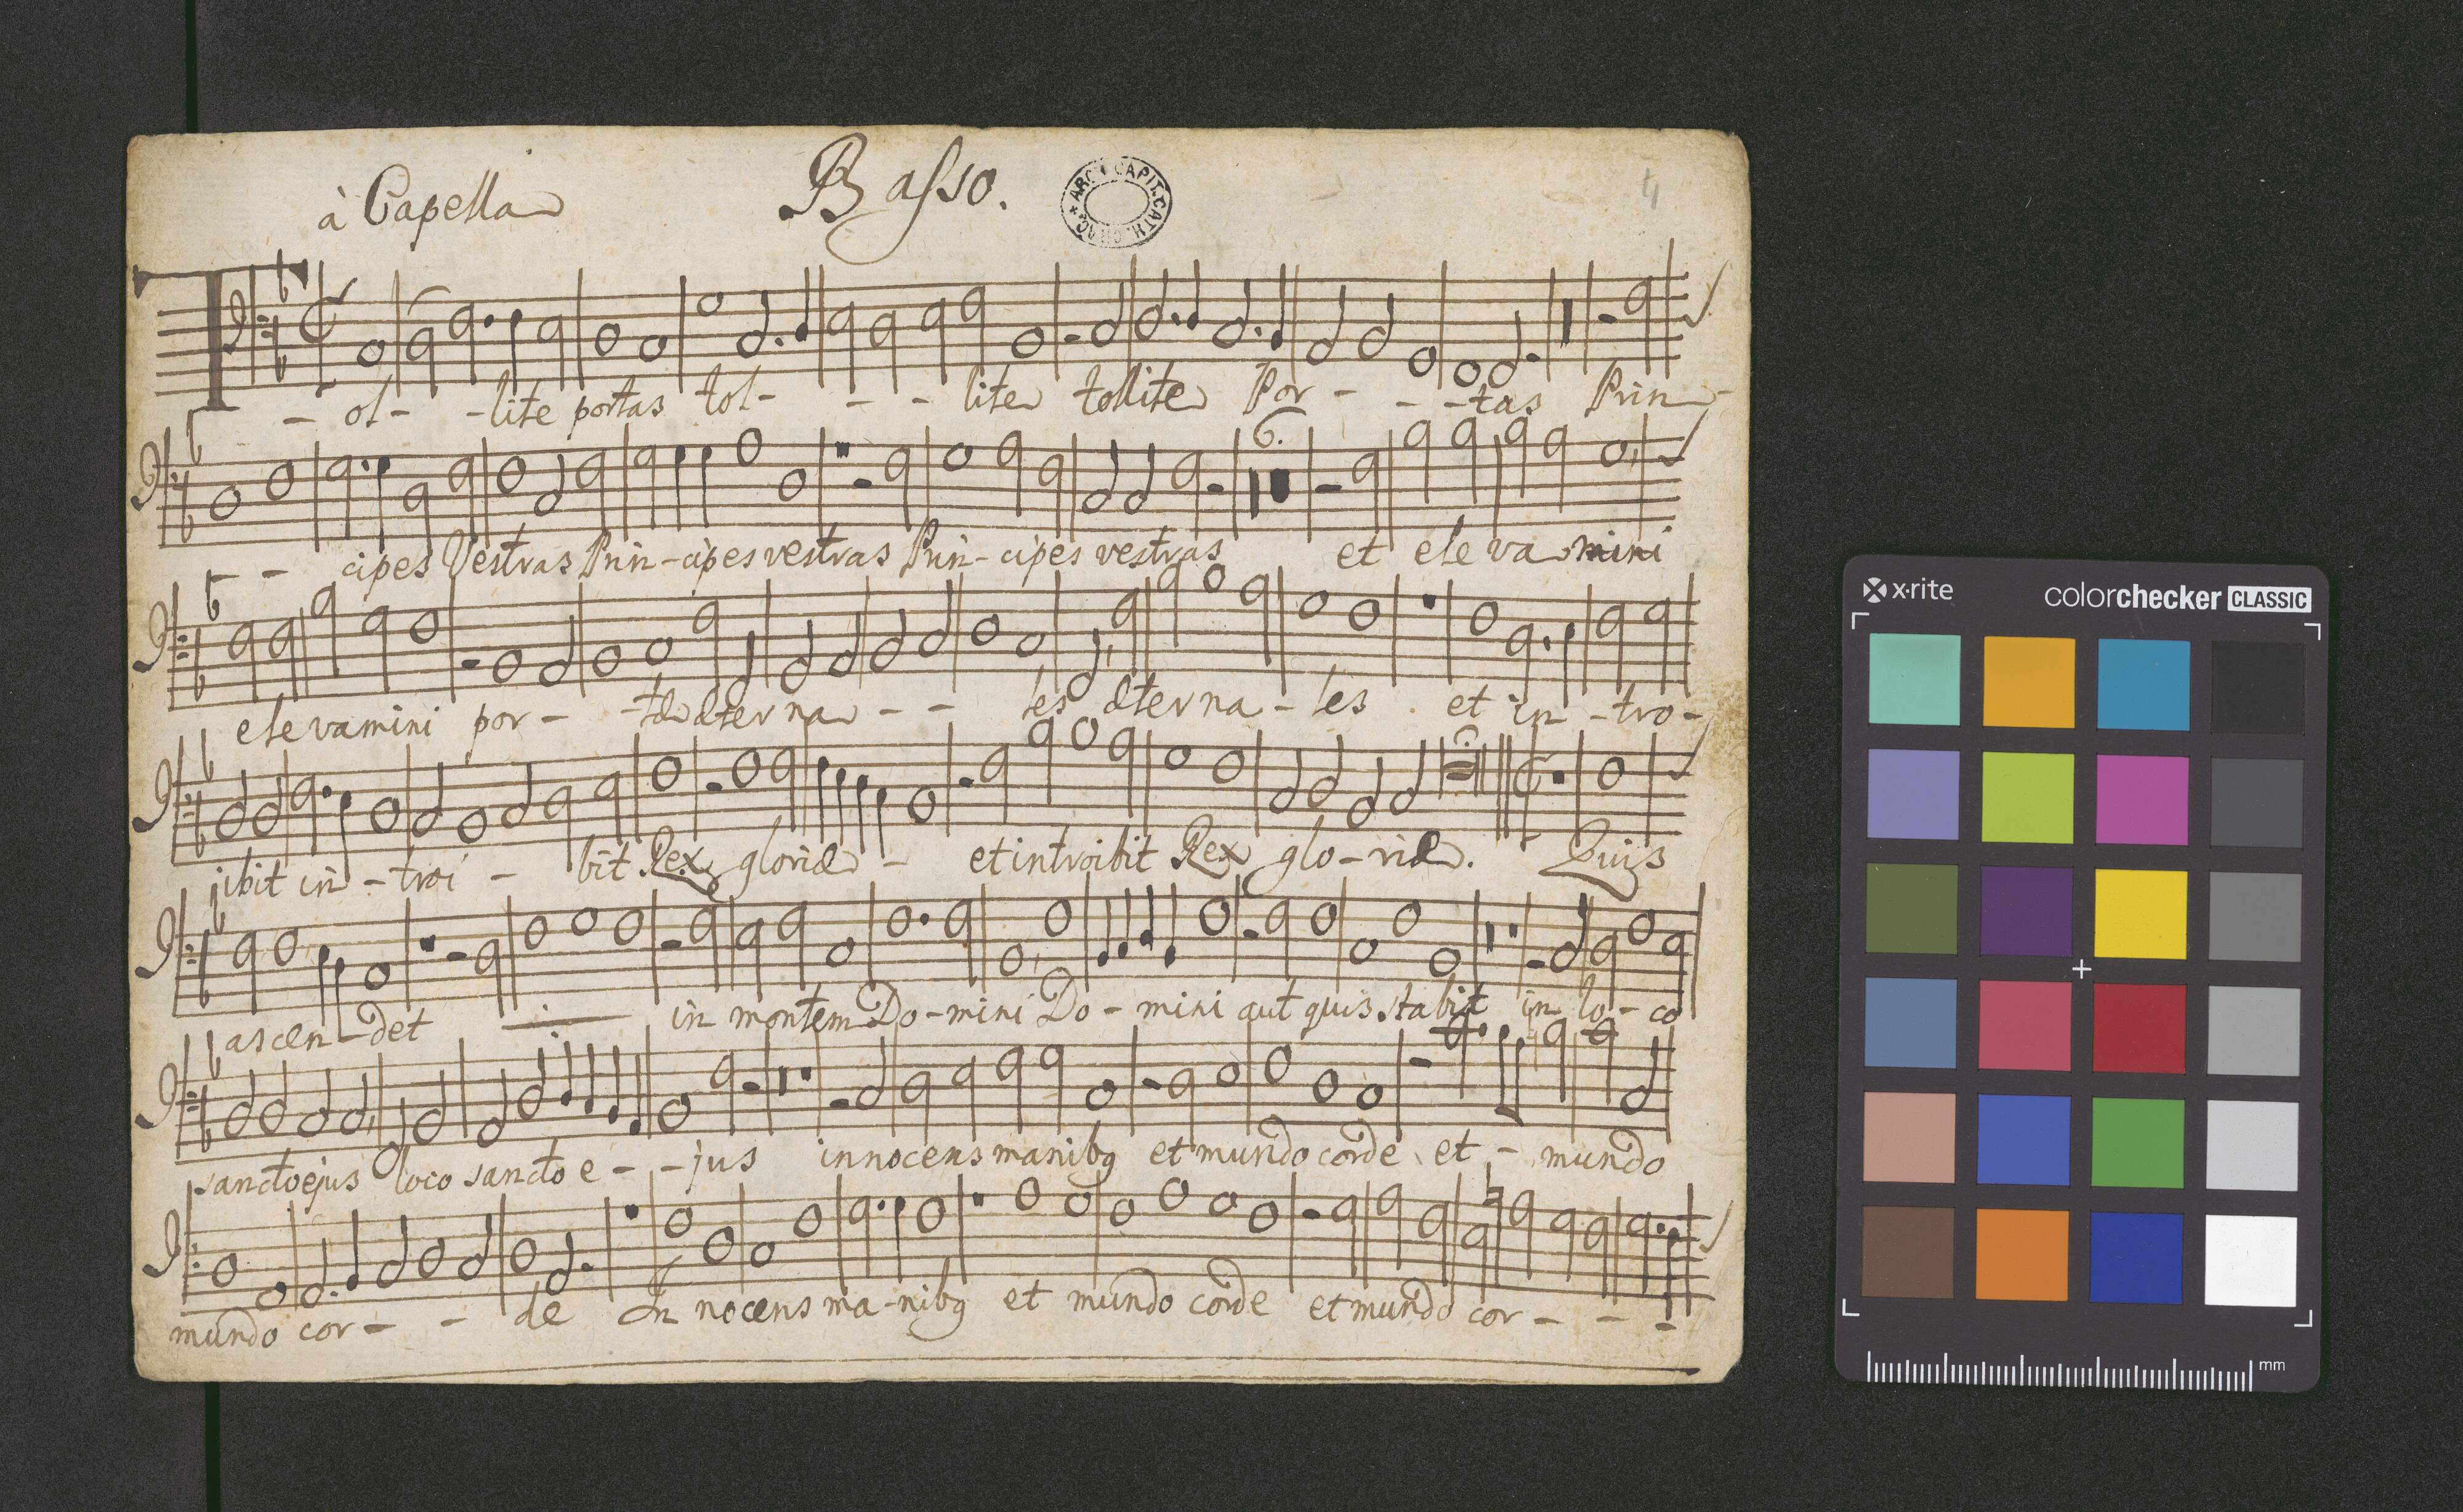 à Capella Basso. 4
ARC. CAPIT. CATH. CRAC.
Tol- - lite portas tol- - - lite tollite Por- - - tas Prin-
6.
- - cipes Vestras Prin-cipes vestras Prin-cipes vestras et elevamini
elevamini por- - tæ æterna - - les æterna-les et in-tro-
jibit in-troi - bit Rex gloriæ - et introibit Rex glo-riæ. Quis
ascen-det in montem Do-mini Do-mini aut quis stabit in lo-co
sancto ejus loco sancto e- - jus innocens manibq et mundo corde et - mundo
mundo cor- - de In nocens ma-nibq et mundo corde et mundo cor- - -
x·rite colorchecker CLASSIC
mm